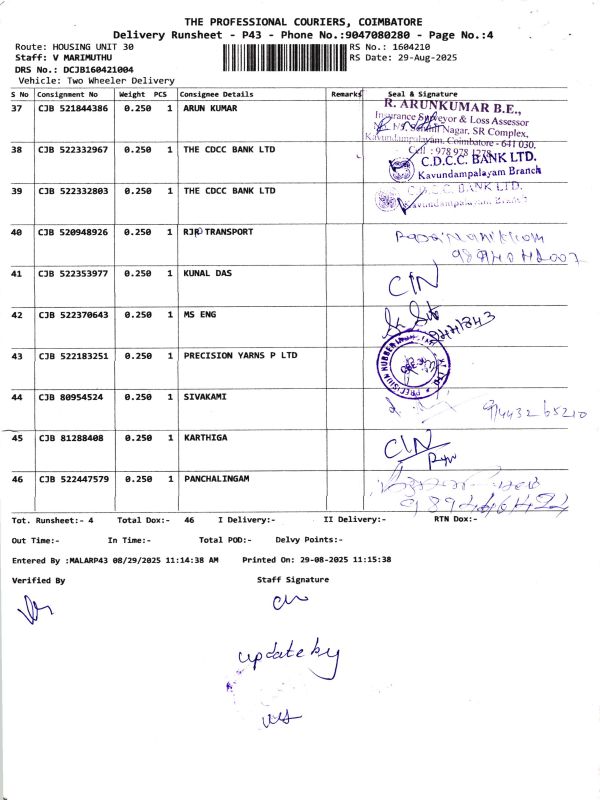 THE PROFESSIONAL COURIERS, COIMBATORE
Delivery Runsheet - P43 - Phone No.:9047080280 - Page No.:4
Route: HOUSING UNIT 30 RS No.: 1604210
Staff: V MARIMUTHU RS Date: 29-Aug-2025
DRS No.: DCJB160421004
Vehicle: Two Wheeler Delivery
S No Consignment No Weight PCS Consignee Details Remarks Seal & Signature
37 CJB 521844386 0.250 1 ARUN KUMAR
R. ARUNKUMAR B.E.,
Insurance Surveyor & Loss Assessor
Nagar, SR Complex,
Kavundampalayam, Coimbatore - 641 030.
Cell : 978 978 1278
38 CJB 522332967 0.250 1 THE CDCC BANK LTD
C.D.C.C. BANK LTD.
Kavundampalayam Branch
39 CJB 522332803 0.250 1 THE CDCC BANK LTD
C.D.C.C. BANK LTD.
Kavundampalayam Branch
40 CJB 520948926 0.250 1 RJR TRANSPORT
41 CJB 522353977 0.250 1 KUNAL DAS
C/N
42 CJB 522370643 0.250 1 MS ENG
43 CJB 522183251 0.250 1 PRECISION YARNS P LTD
44 CJB 80954524 0.250 1 SIVAKAMI
9443265210
45 CJB 81288408 0.250 1 KARTHIGA
C/N
46 CJB 522447579 0.250 1 PANCHALINGAM
Tot. Runsheet:- 4 Total Dox:- 46 I Delivery:- II Delivery:- RTN Dox:-
Out Time:- In Time:- Total POD:- Delvy Points:-
Entered By :MALARP43 08/29/2025 11:14:38 AM Printed On: 29-08-2025 11:15:38
Verified By Staff Signature
update by